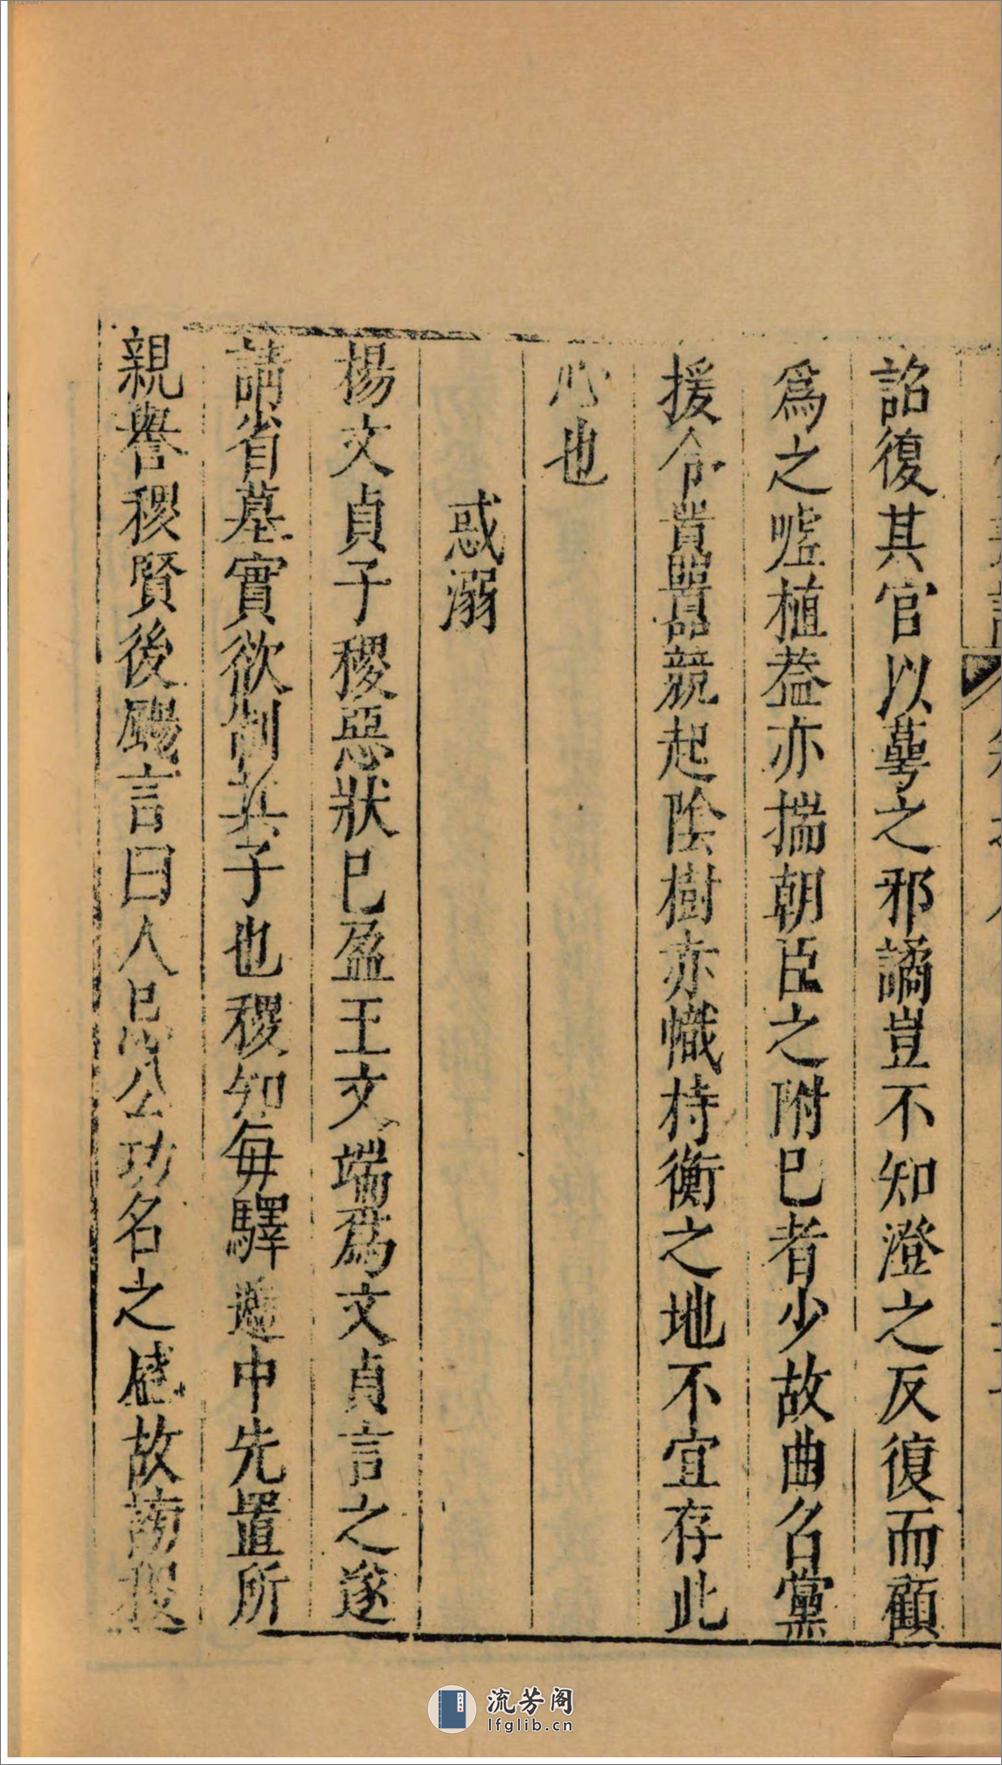 詔復其官以蕚之邪譎豈不知澄之反復而顧
爲之噓植葢亦揣朝臣之附已者少故曲名黨
援令黨嚚競起陰樹赤幟持衡之地不宜存此
心也
惑溺
楊文貞子稷惡狀已盈王文端爲文貞言之遂
請省墓實欲制其子也稷知每驛遞中先置所
親譽稷賢後颺言曰人忌公功名之盛故謗稷
流芳阁
lfglib.cn